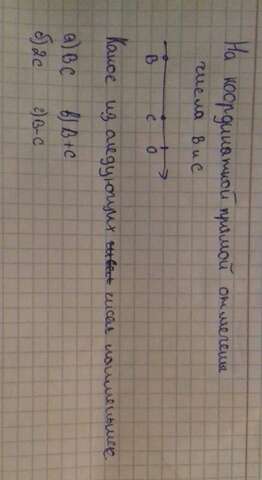 На координатной прямой отмечены
числа в и с
В С О
Какое из следующих чисел наименьшее
а) ВС в) В+С
б) 2С г) В-С